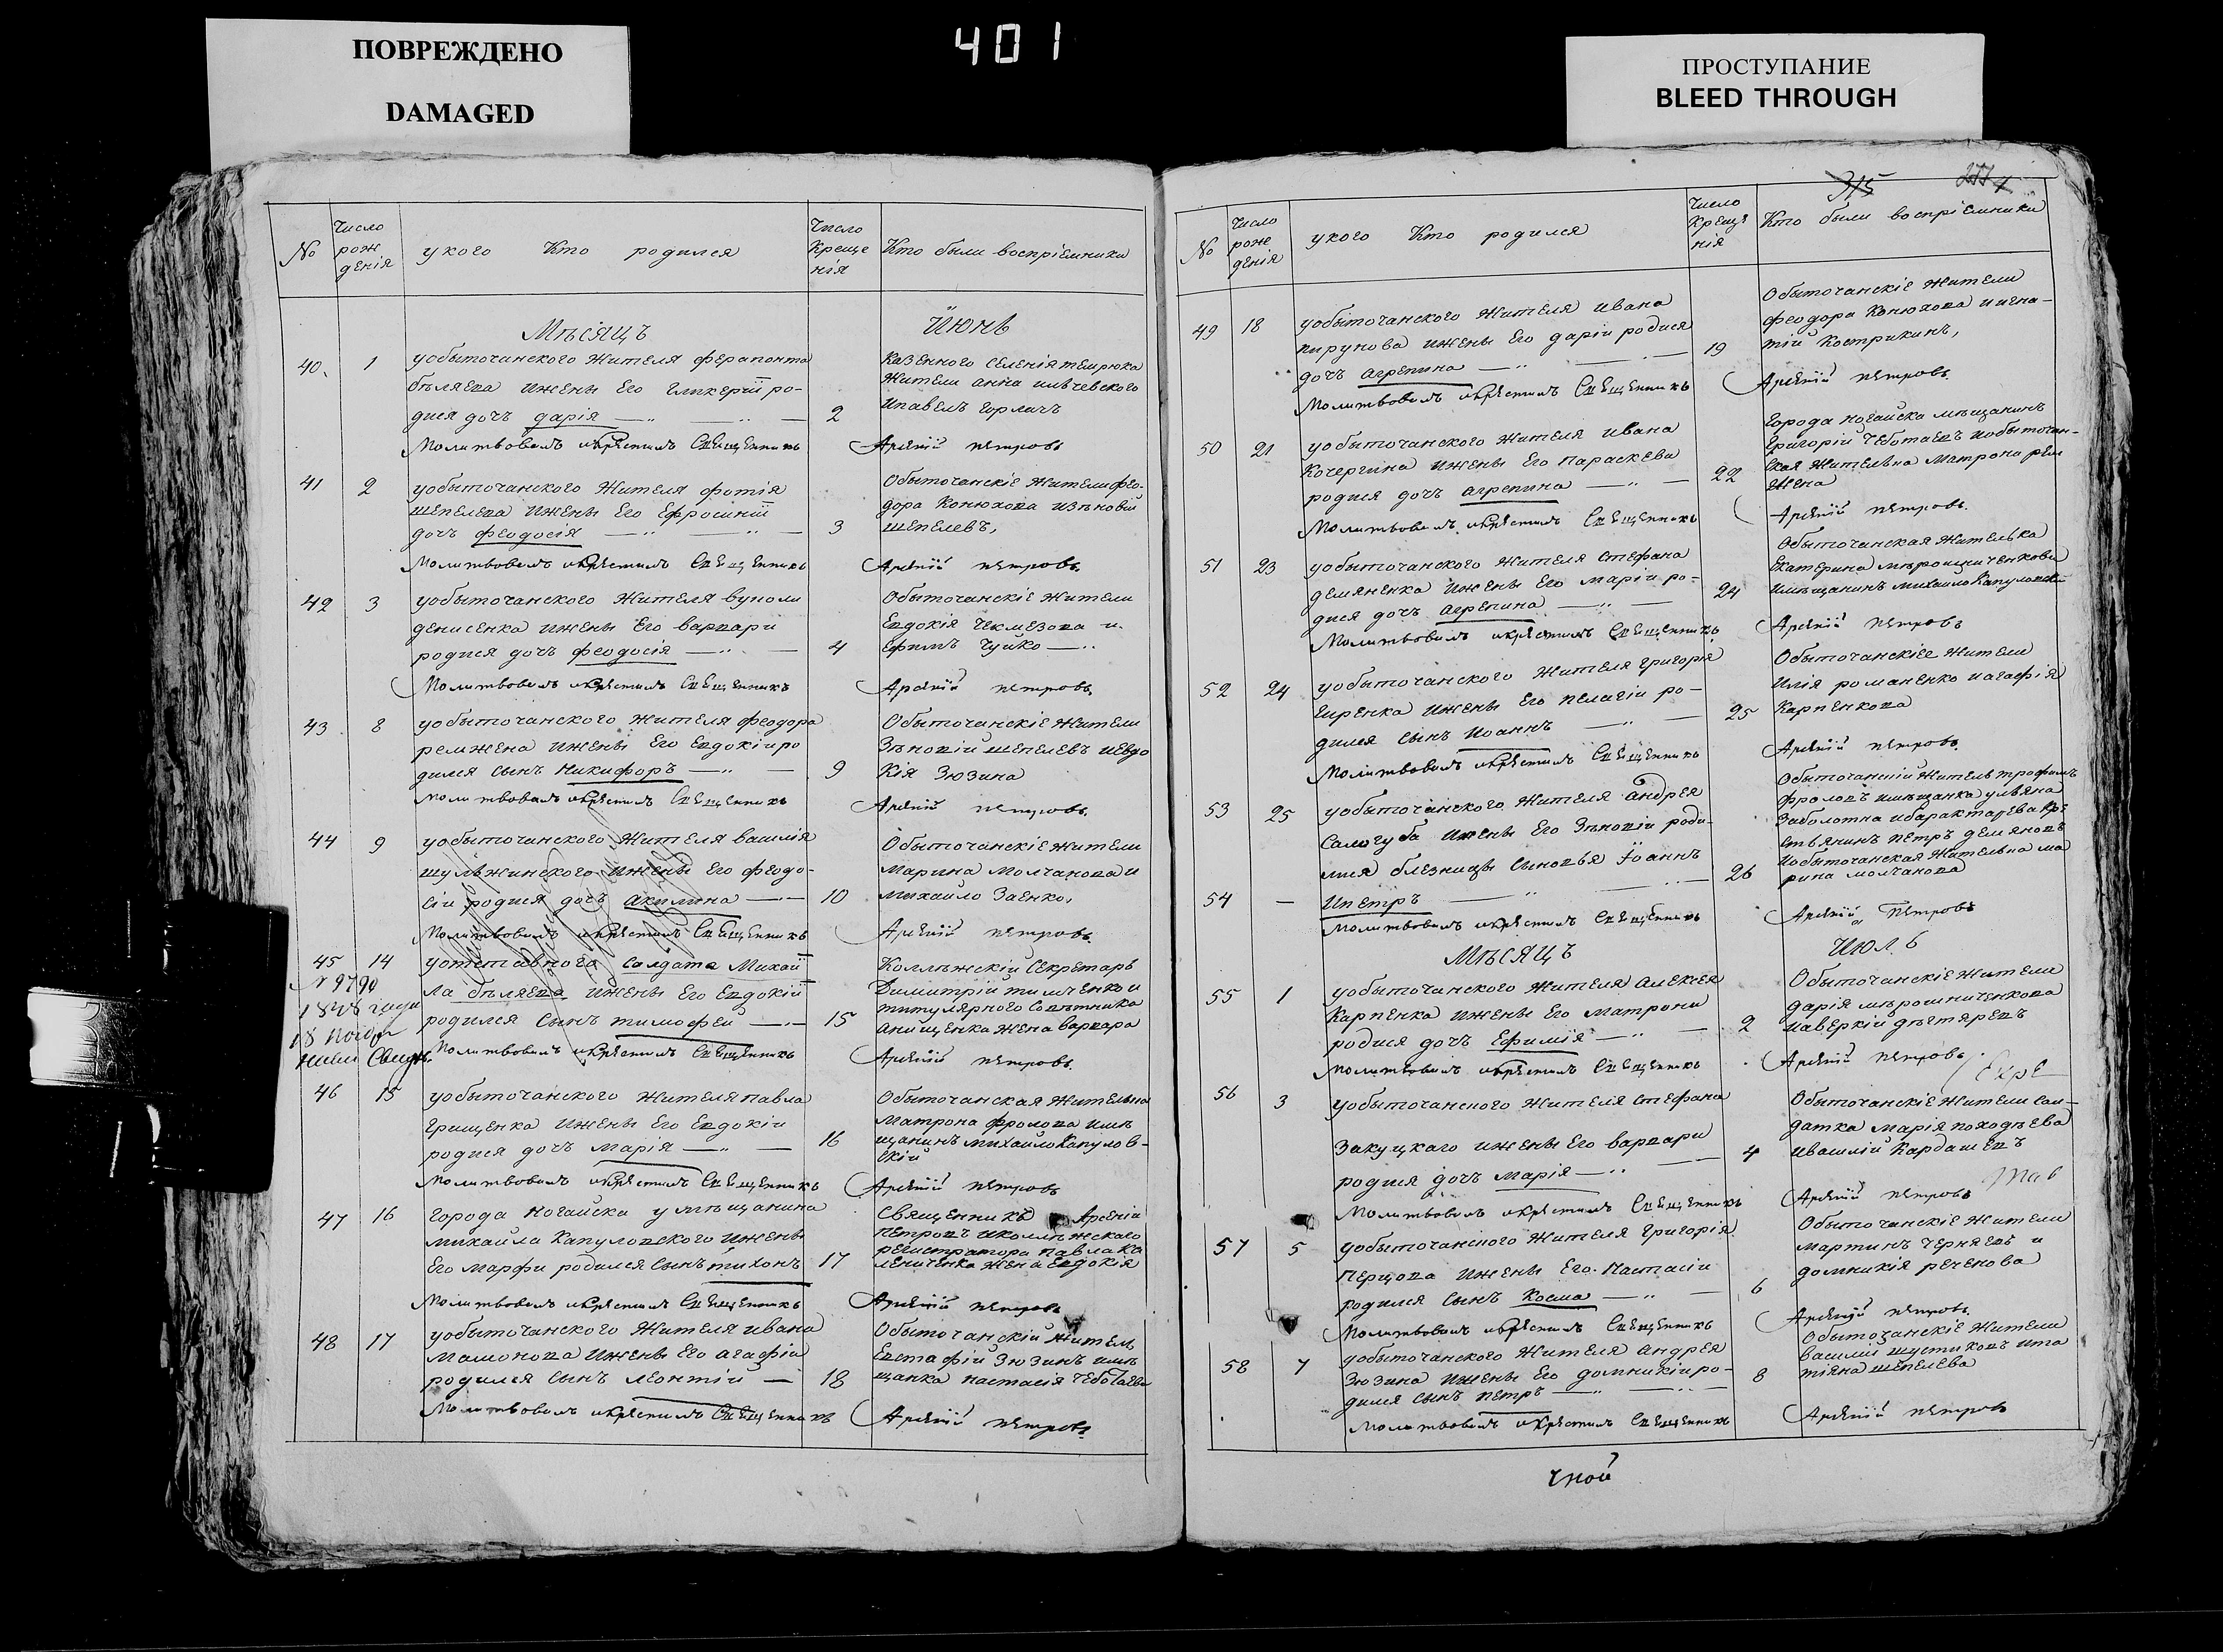 ПОВРЕЖДЕНО
DAMAGED
401
ПРОСТУПАНИЕ
BLEED THROUGH
№
Число рож денія
у кого Кто родился
Число Креще нія
Кто были воспріемники
Мѣсяцъ Июнь
40. 1 уобыточанского Жителя ферапонта
бѣляева ижены Его гликеріи ро-
дися дочъ дарія 2
Молитвовалъ икрестилъ Священникъ
Казенного селенія темрюка
Жители анна
ипавелъ горлачъ
Арсеній петровъ
41 2 уобыточанского Жителя фотія
шепелева ижены Его Ефросиніи
дочъ феодосія 3
Молитвовалъ икрестилъ Священникъ
Обыточанскіе Жители фео-
дора Конюхова изѣновій
шепелевъ,
Арсеній петровъ
42 3 уобыточанского Жителя вуколи
денисенка ижены Его варвари
родися дочъ феодосія 4
Молитвовалъ икрестилъ Священникъ
Обыточанскіе Жители
Евдокія Чекмезова и
Ефимъ Чуйко
Арсеній петровъ
43 8 уобыточанского Жителя феодора
ремжена ижены Его Евдокіи ро
дился сынъ Никифоръ 9
Молитвовалъ икрестилъ Священникъ
Обыточанскіе Жители
Зѣновій шепелевъ иевдо
кія Зюзина
Арсеній петровъ
44 9 уобыточанского Жителя василія
шульжинского ижены Его феодо-
сіи родися дочъ акилина 10
Молитвовалъ икрестилъ Священникъ
Обыточанскіе Жители
Марина Молчанова и
михайло Заенко,
Арсеній петровъ
45 14 уотставного салдата Михаи
№ 9790
ла бѣляева ижены Его Евдокіи
18 года
родился сынъ тимофей 15
18
Молитвовалъ икрестилъ Священникъ
Коллѣжскій Секретарь
Димитрій тимченко и
титулярного совѣтника
жена варвара
Арсеній петровъ
46 15 уобыточанского Жителя павла
грищенка ижены Его Евдокіи
родися дочъ марія 16
Молитвовалъ икрестилъ Священникъ
Обыточанская Жителька
Матрона фролова имѣ
щанинъ михайло Капулов-
скій
Арсеній петровъ
47 16 города Ногайска у мѣщанина
михайла Капуловского ижены
Его Марфи родился сынъ тихонъ 17
Молитвовалъ икрестилъ Священникъ
Священникъ Арсеніи
петровъ иколлѣжскаго
регистратора павла Ка
жена Евдокія
Арсеній петровъ
48 17 уобыточанского Жителя ивана
Мамонова ижены Его агафіи
родился сынъ леонтій 18
Молитвовалъ икрестилъ Священникъ
Обыточанскій Житель
Евстафій Зюзинъ имѣ
щанка настасія Чеботаева
Арсеній петровъ
315
№
Число рож денія
у кого Кто родился
Число Креще нія
Кто были воспріемники
49 18 уобыточанского Жителя ивана
пирунова ижены Его даріи родися
дочъ агрепина 19
Молитвовалъ икрестилъ Священникъ
Обыточанскіе Жители
феодора Конюхова иигна-
тій Кострикинъ,
Арсеній петровъ
50 21 уобыточанского Жителя ивана
Кочергина ижены Его параскеви
родися дочъ агрепина 22
Молитвовалъ икрестилъ Священникъ
Города ногайска мѣщанинъ
григорій Чеботаевъ иобыточан-
ская Жителька Матрона рем
жена
Арсеній петровъ
51 23 уобыточанского Жителя стефана
демяненка ижены Его маріи ро-
дися дочъ агрепина 24
Молитвовалъ икрестилъ Священникъ
Обыточанская Жителька
Екатерина мѣрошниченкова
имѣщанинъ михайло
Арсеній петровъ
52 24 уобыточанского Жителя григорія
ижены Его пелагіи ро-
дился сынъ Иоаннъ 25
Молитвовалъ икрестилъ Священникъ
Обыточанскіе Жители
илія романенко иагафія
Карпенкова
Арсеній петровъ
53 25 уобыточанского Жителя андрея
Саллогуба ижены Его Зѣновіи роди-
лися близнецы сыновья Іоаннъ 26
54 — Ипетръ
Молитвовалъ икрестилъ Священникъ
Обыточанскій Житель трофимъ
фроловъ имѣщанка ульяна
Заболотна кре
стьянинъ петръ демяновъ
иобыточанская Жителька ма
рина молчанова
Арсеній петровъ
Мѣсяцъ Июль
55 1 уобыточанского Жителя алексея
Карпенка ижены Его матрони
родися дочъ Ефимія 2
Молитвовалъ икрестилъ Священникъ
Обыточанскіе Жители
дарія мѣрошниченкова
иаверкій дѣгтяревъ
Арсеній петровъ
56 3 уобыточанского Жителя стефана
Закуцкаго ижены Его варвари
родися дочъ марія 4
Молитвовалъ икрестилъ Священникъ
Обыточанскіе Жители сол-
датка марія походѣева
ивасилій Кардашевъ
Арсеній петровъ
57 5 уобыточанского Жителя григорія
перцова ижены Его настасіи
родился сынъ Косма 6
Молитвовалъ икрестилъ Священникъ
Обыточанскіе Жители
мартинъ Черняевъ и
домникія реченова
Арсеній петровъ
58 7 уобыточанского Жителя андрея
Зюзина ижены Его домникіи ро-
дился сынъ петръ 8
Молитвовалъ икрестилъ Священникъ
Обыточанскіе Жители
василій шустиковъ ита
тіяна шепелева
Арсеній петровъ
чной